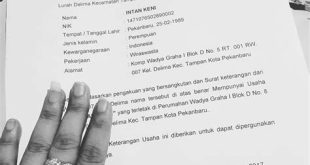 Lurah Delima Kecamatan Tampan
Nama : INTAN KENI
NIK : 1471076502890002
Tempat / Tanggal Lahir : Pekanbaru, 25-02-1989
Jenis kelamin : Perempuan
Kewarganegaraan : Indonesia
Pekerjaan : Wiraswasta
Alamat : Komp Wadya Graha I Blok D No 5 RT 001 RW.
007 Kel. Delima Kec. Tampan Kota Pekanbaru
pengakuan yang bersangkutan dan Surat keterangan dari
Delima nama tersebut di atas benar Mempunyai Usaha
yang terletak di Perumahan Wadya Graha I Blok D
Delima Kec. Tampan Kota Pekanbaru.
Keterangan Usaha ini diberikan untuk dapat dipergunakan